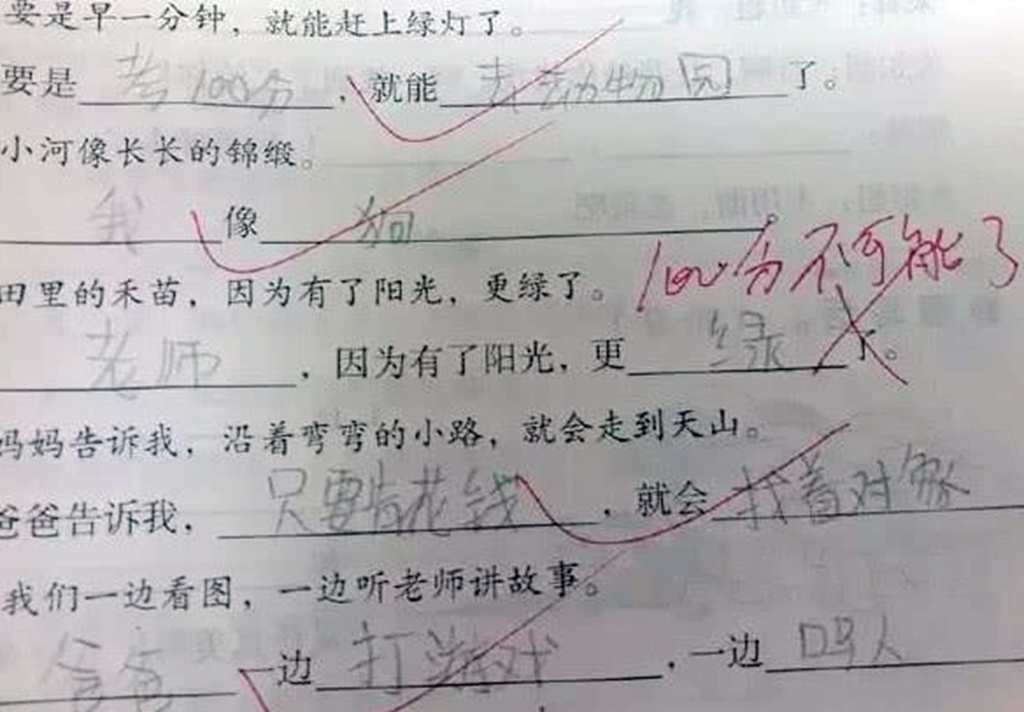 要是早一分钟，就能赶上绿灯了。
要是考100分，就能去动物园了。
小河像长长的锦缎。
我像狗
田里的禾苗，因为有了阳光，更绿了。
100分不可能了
老师，因为有了阳光，更绿了。
妈妈告诉我，沿着弯弯的小路，就会走到天山。
爸爸告诉我，只要肯花钱，就会找着对象
我们一边看图，一边听老师讲故事。
爸爸一边打游戏，一边吗人